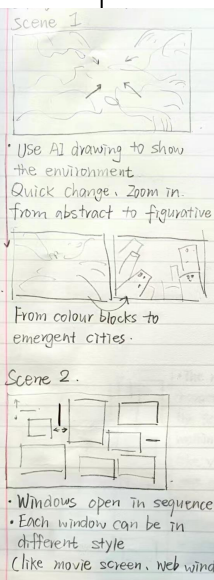 Scene 1
• Use AI drawing to show
the environment
Quick change、Zoom in.
from abstract to figurative
From colour blocks to
emergent cities.
Scene 2.
• Windows open in sequence
• Each window can be in
different style
(like movie screen、web wind